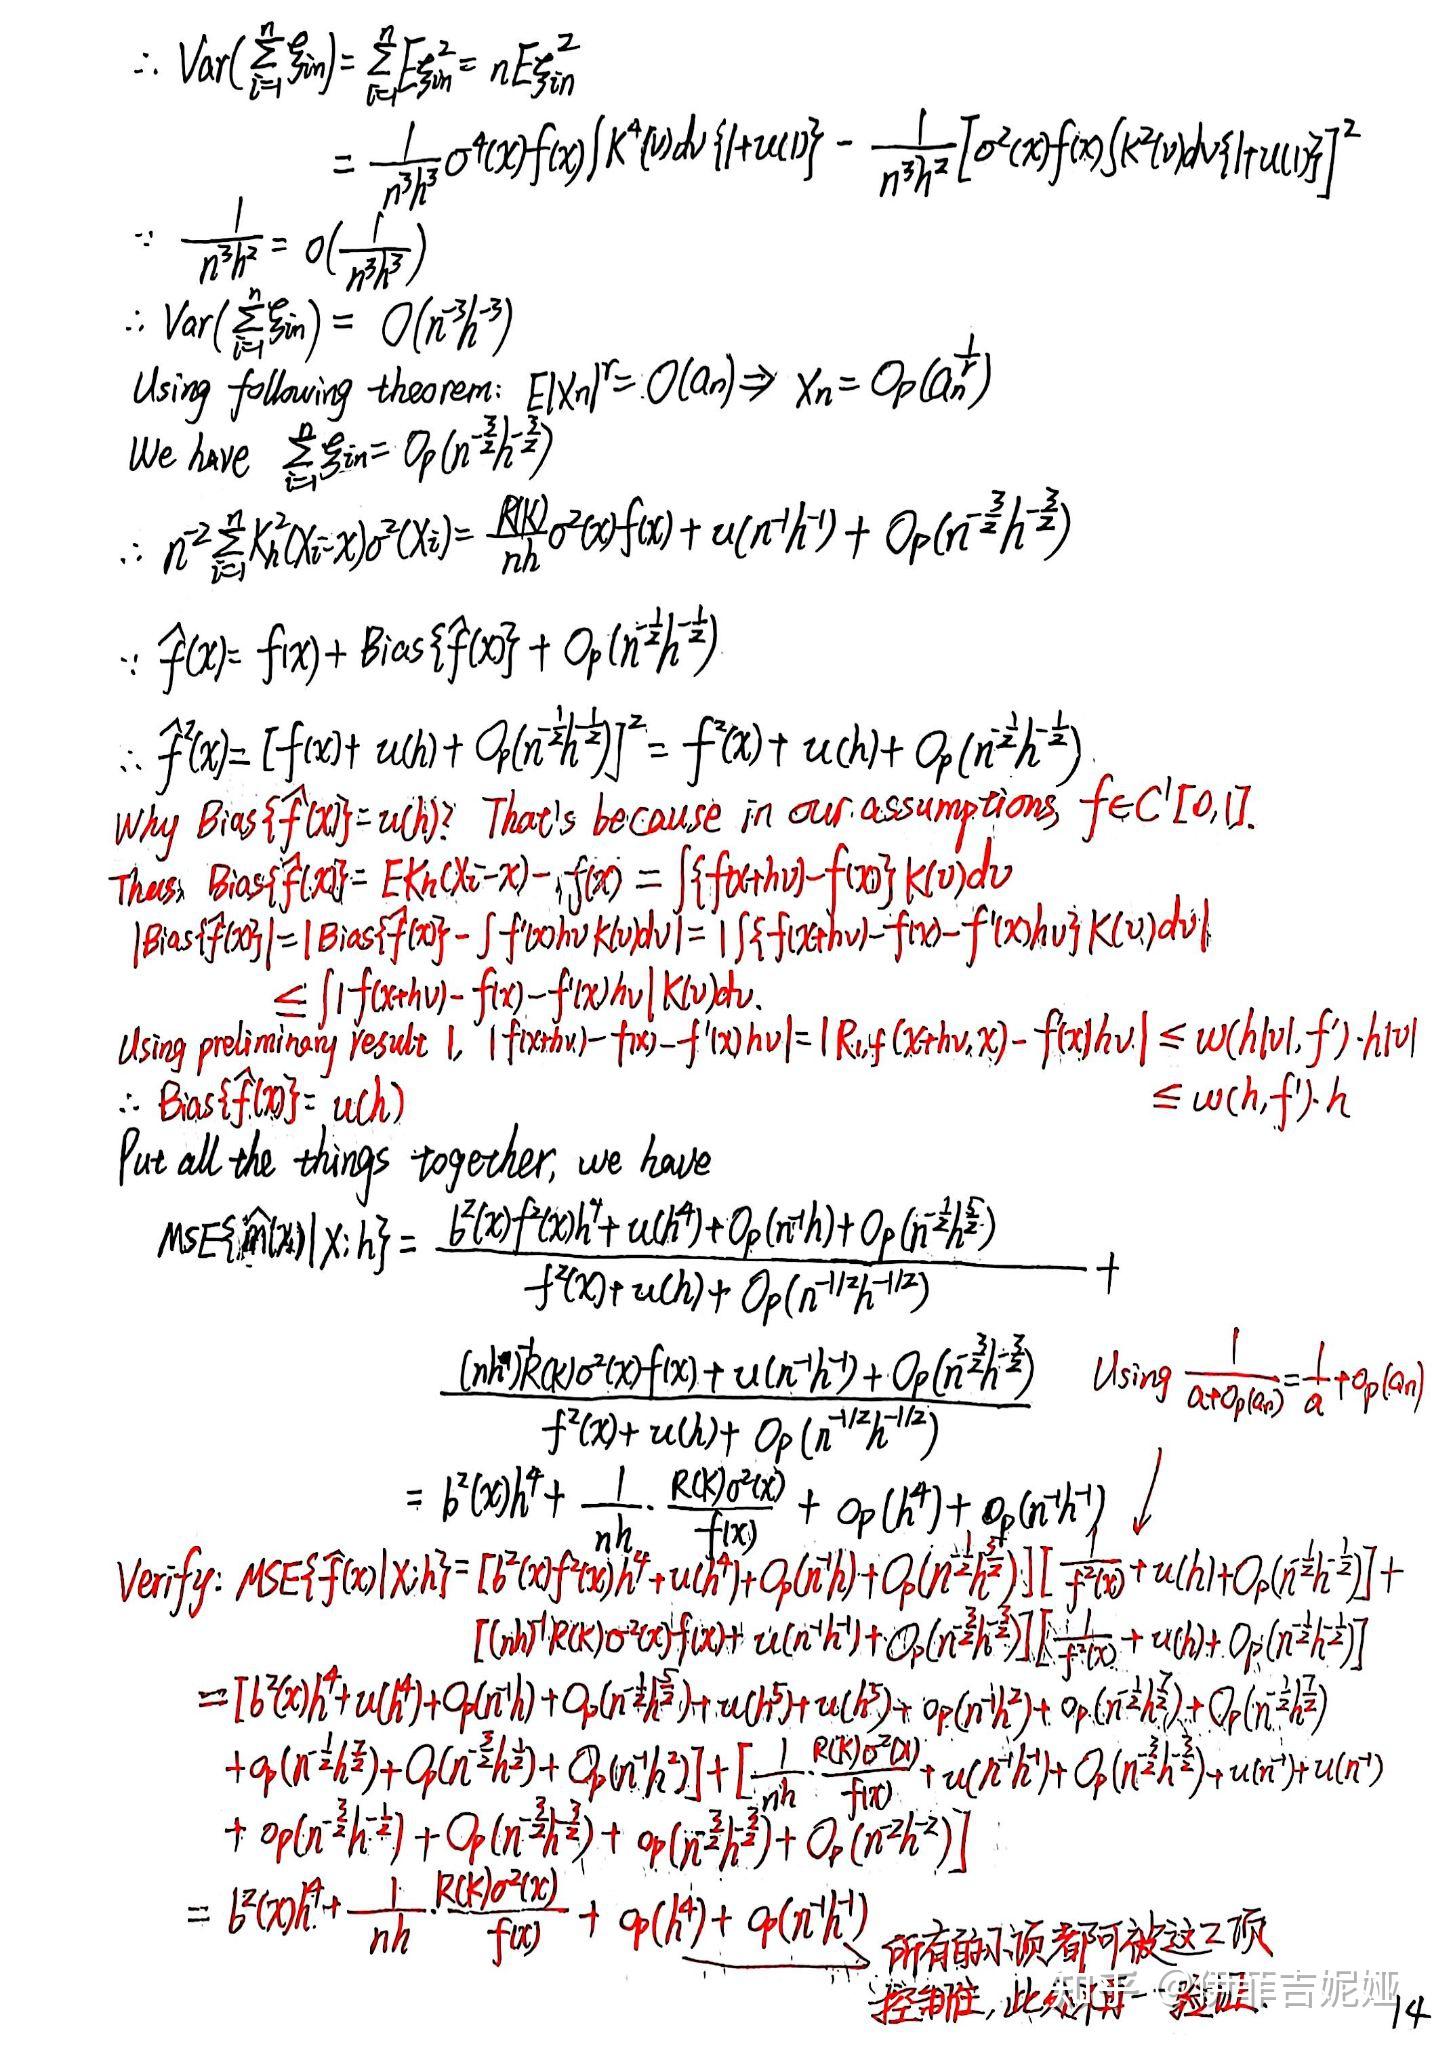 ∴ Var(∑_{i=1}^{n} ξ_{in}) = ∑_{i=1}^{n} Eξ_{in}^2 = nEξ_{in}^2
= 1/(n^3h^3) σ^4(x)f(x)∫K^4(v)dv{1+u(1)} - 1/(n^3h^2) [σ^2(x)f(x)∫K^2(v)dv{1+u(1)}]^2
∵ 1/(n^3h^2) = o(1/(n^3h^3))
∴ Var(∑_{i=1}^{n} ξ_{in}) = O(n^{-3}h^{-3})
Using following theorem: E|X_n|^r = O(a_n) ⇒ X_n = O_p(a_n^{1/r})
We have ∑_{i=1}^{n} ξ_{in} = O_p(n^{-3/2}h^{-3/2})
∴ n^{-2}∑_{i=1}^{n} K_h^2(X_i-x)σ^2(X_i) = R(K)/(nh) σ^2(x)f(x) + u(n^{-1}h^{-1}) + O_p(n^{-3/2}h^{-3/2})
∵ \hat{f}(x) = f(x) + Bias{\hat{f}(x)} + O_p(n^{-1/2}h^{-1/2})
∴ \hat{f}^2(x) = [f(x) + u(h) + O_p(n^{-1/2}h^{-1/2})]^2 = f^2(x) + u(h) + O_p(n^{-1/2}h^{-1/2}).
Why Bias{\hat{f}(x)} = u(h)? That's because in our assumptions, f∈C'[0,1].
Thus, Bias{\hat{f}(x)} = EK_h(X_i-x) - f(x) = ∫{f(x+hv)-f(x)}K(v)dv
|Bias{\hat{f}(x)}| = |Bias{\hat{f}(x)} - ∫f'(x)hvK(v)dv| = |∫{f(x+hv)-f(x)-f'(x)hv}K(v)dv|
≤ ∫|f(x+hv)-f(x)-f'(x)hv|K(v)dv.
Using preliminary result 1, |f(x+hv)-f(x)-f'(x)hv| = |R_{1,f}(x+hv,x)-f'(x)hv| ≤ w(h|v|,f')·h|v|
∴ Bias{\hat{f}(x)} = u(h) ≤ w(h,f')·h
Put all the things together, we have
MSE{\hat{m}(x)|X;h} = [b^2(x)f^2(x)h^4 + u(h^4) + O_p(n^{-1}h) + O_p(n^{-1/2}h^{5/2})] / [f^2(x) + u(h) + O_p(n^{-1/2}h^{-1/2})] +
[(nh)^{-1}R(K)σ^2(x)f(x) + u(n^{-1}h^{-1}) + O_p(n^{-3/2}h^{-3/2})] / [f^2(x) + u(h) + O_p(n^{-1/2}h^{-1/2})]
Using 1/(a+O_p(a_n)) = 1/a + O_p(a_n)
= b^2(x)h^4 + 1/(nh) · R(K)σ^2(x)/f(x) + o_p(h^4) + o_p(n^{-1}h^{-1})
Verify: MSE{\hat{f}(x)|X;h} = [b^2(x)f^2(x)h^4 + u(h^4) + O_p(n^{-1}h) + O_p(n^{-1/2}h^{5/2})][1/f^2(x) + u(h) + O_p(n^{-1/2}h^{-1/2})] +
[(nh)^{-1}R(K)σ^2(x)f(x) + u(n^{-1}h^{-1}) + O_p(n^{-3/2}h^{-3/2})][1/f^2(x) + u(h) + O_p(n^{-1/2}h^{-1/2})]
= [b^2(x)h^4 + u(h^4) + O_p(n^{-1}h) + O_p(n^{-1/2}h^{5/2}) + u(h^5) + u(h^5) + o_p(n^{-1}h^2) + o_p(n^{-1/2}h^{7/2}) + O_p(n^{-1/2}h^{7/2})
+ o_p(n^{-1/2}h^{7/2}) + O_p(n^{-3/2}h^{1/2}) + O_p(n^{-1}h^2)] + [1/(nh) · R(K)σ^2(x)/f(x) + u(n^{-1}h^{-1}) + O_p(n^{-3/2}h^{-3/2}) + u(n^{-1}) + u(n^{-1})
+ o_p(n^{-3/2}h^{-1/2}) + O_p(n^{-3/2}h^{-3/2}) + o_p(n^{-3/2}h^{-3/2}) + O_p(n^{-2}h^{-2})]
= b^2(x)h^4 + 1/(nh) · R(K)σ^2(x)/f(x) + o_p(h^4) + o_p(n^{-1}h^{-1})
所有的小项都可被这2项
控制住,此处不再一一验证.
知乎 @伊菲吉妮娅
14